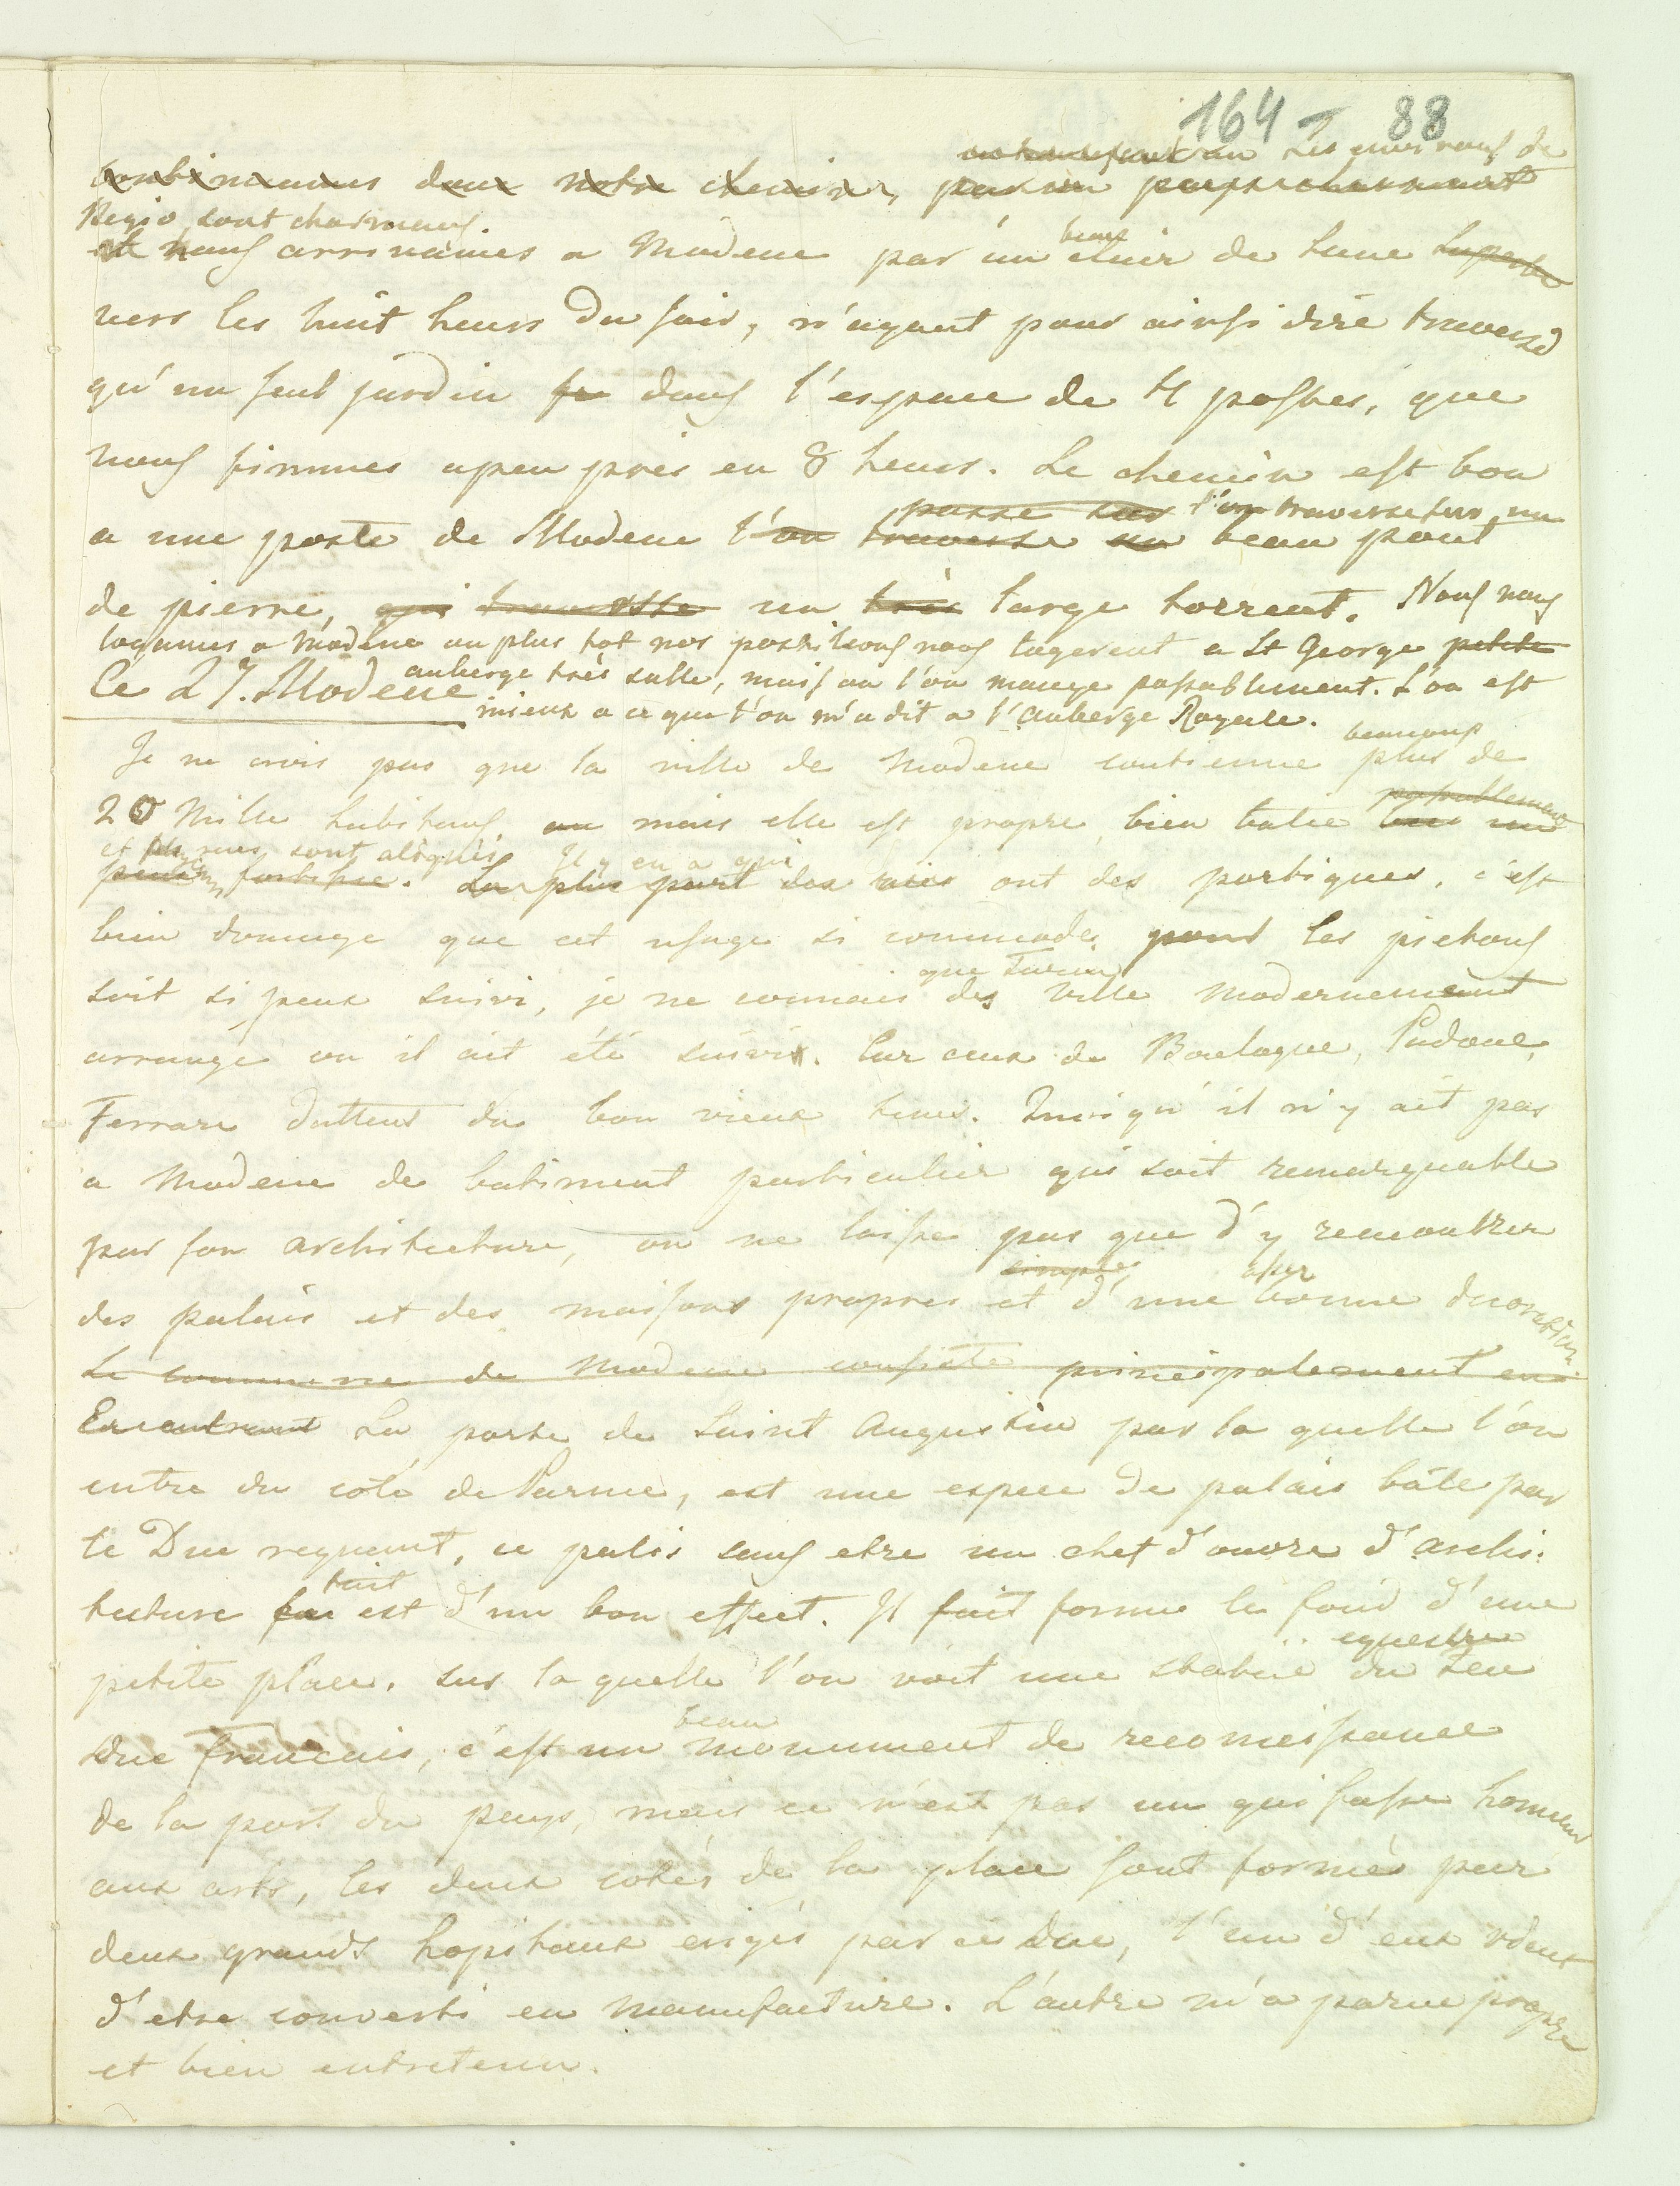 164 - 88
Les environs de
continuames dans notre chemin, par un pays charmant
Regio sont charmans.
et nous arrivames a Modene par un beau clair de lune superbe
vers les huit heurs du soir, n'ayant pour ainsi dire traversé
qu'un seul jardin fu dans l'espace de 4 postes, que
nous finmes apeu près en 8 heurs. Le chemin est bon
passe sur l'on traverse sur un
a une poste de Modene l'on traverse un beau pont
de pierre, qui traverse un très large torrent. Nous nous
logames a Modène ou plus tot nos postilions nous logerent a St George petite
auberge très salle, mais ou l'on mange passablement. L'on est
Ce 27. Modene
mieux a ce que l'on m'a dit a l'auberge Royale.
Je ne crois pas que la ville de Modene contienne beaucoup plus de
20 Mille habitans, mais elle est propre, bien batie passablement
et ses rues sont alignés Il y en a qui
fortifiée. La plus part des rues ont des portiques, c'est
bien domage que cet usage si commode pour les pietons
soit si peux suivi, je ne connais que Turin des ville modernement
arrangé ou il ait été suivi. Car ceux de Boulogne, Padoue,
Ferrare dattent du bon vieux tems. Quoiqu'il n'y ait pas
a Modene de batiment particulier qui soit remarquable
par son architecture, on ne laisse pas que d'y rencontrer
simple
des palais et des maisons propres et d'une asser bonne decoration.
Le commerce de Modene consiste principalement en
En entrant La porte de Saint Augustin par la quelle l'on
entre du coté de Parme, est une espece de palais bâti par
le Duc regnant, ce palis sans etre un chef d'ouvre d'archi:
tecture fai fait est d'un bon effect. Il fait forme le fond d'une
petite place, sur la quelle l'on voit une statüe equestre du feu
Duc francais, c'est un beau monument de reconoissance
de la part du pays, mais ce n'est pas un qui fasse honneur
aux arts, les deux cotés de la place sont formés par
deux grands hopitaux erigés par ce Duc, l'un d'eux vient
d'etre converti en manufacture. L'autre m'a parue propre
et bien entretenu.